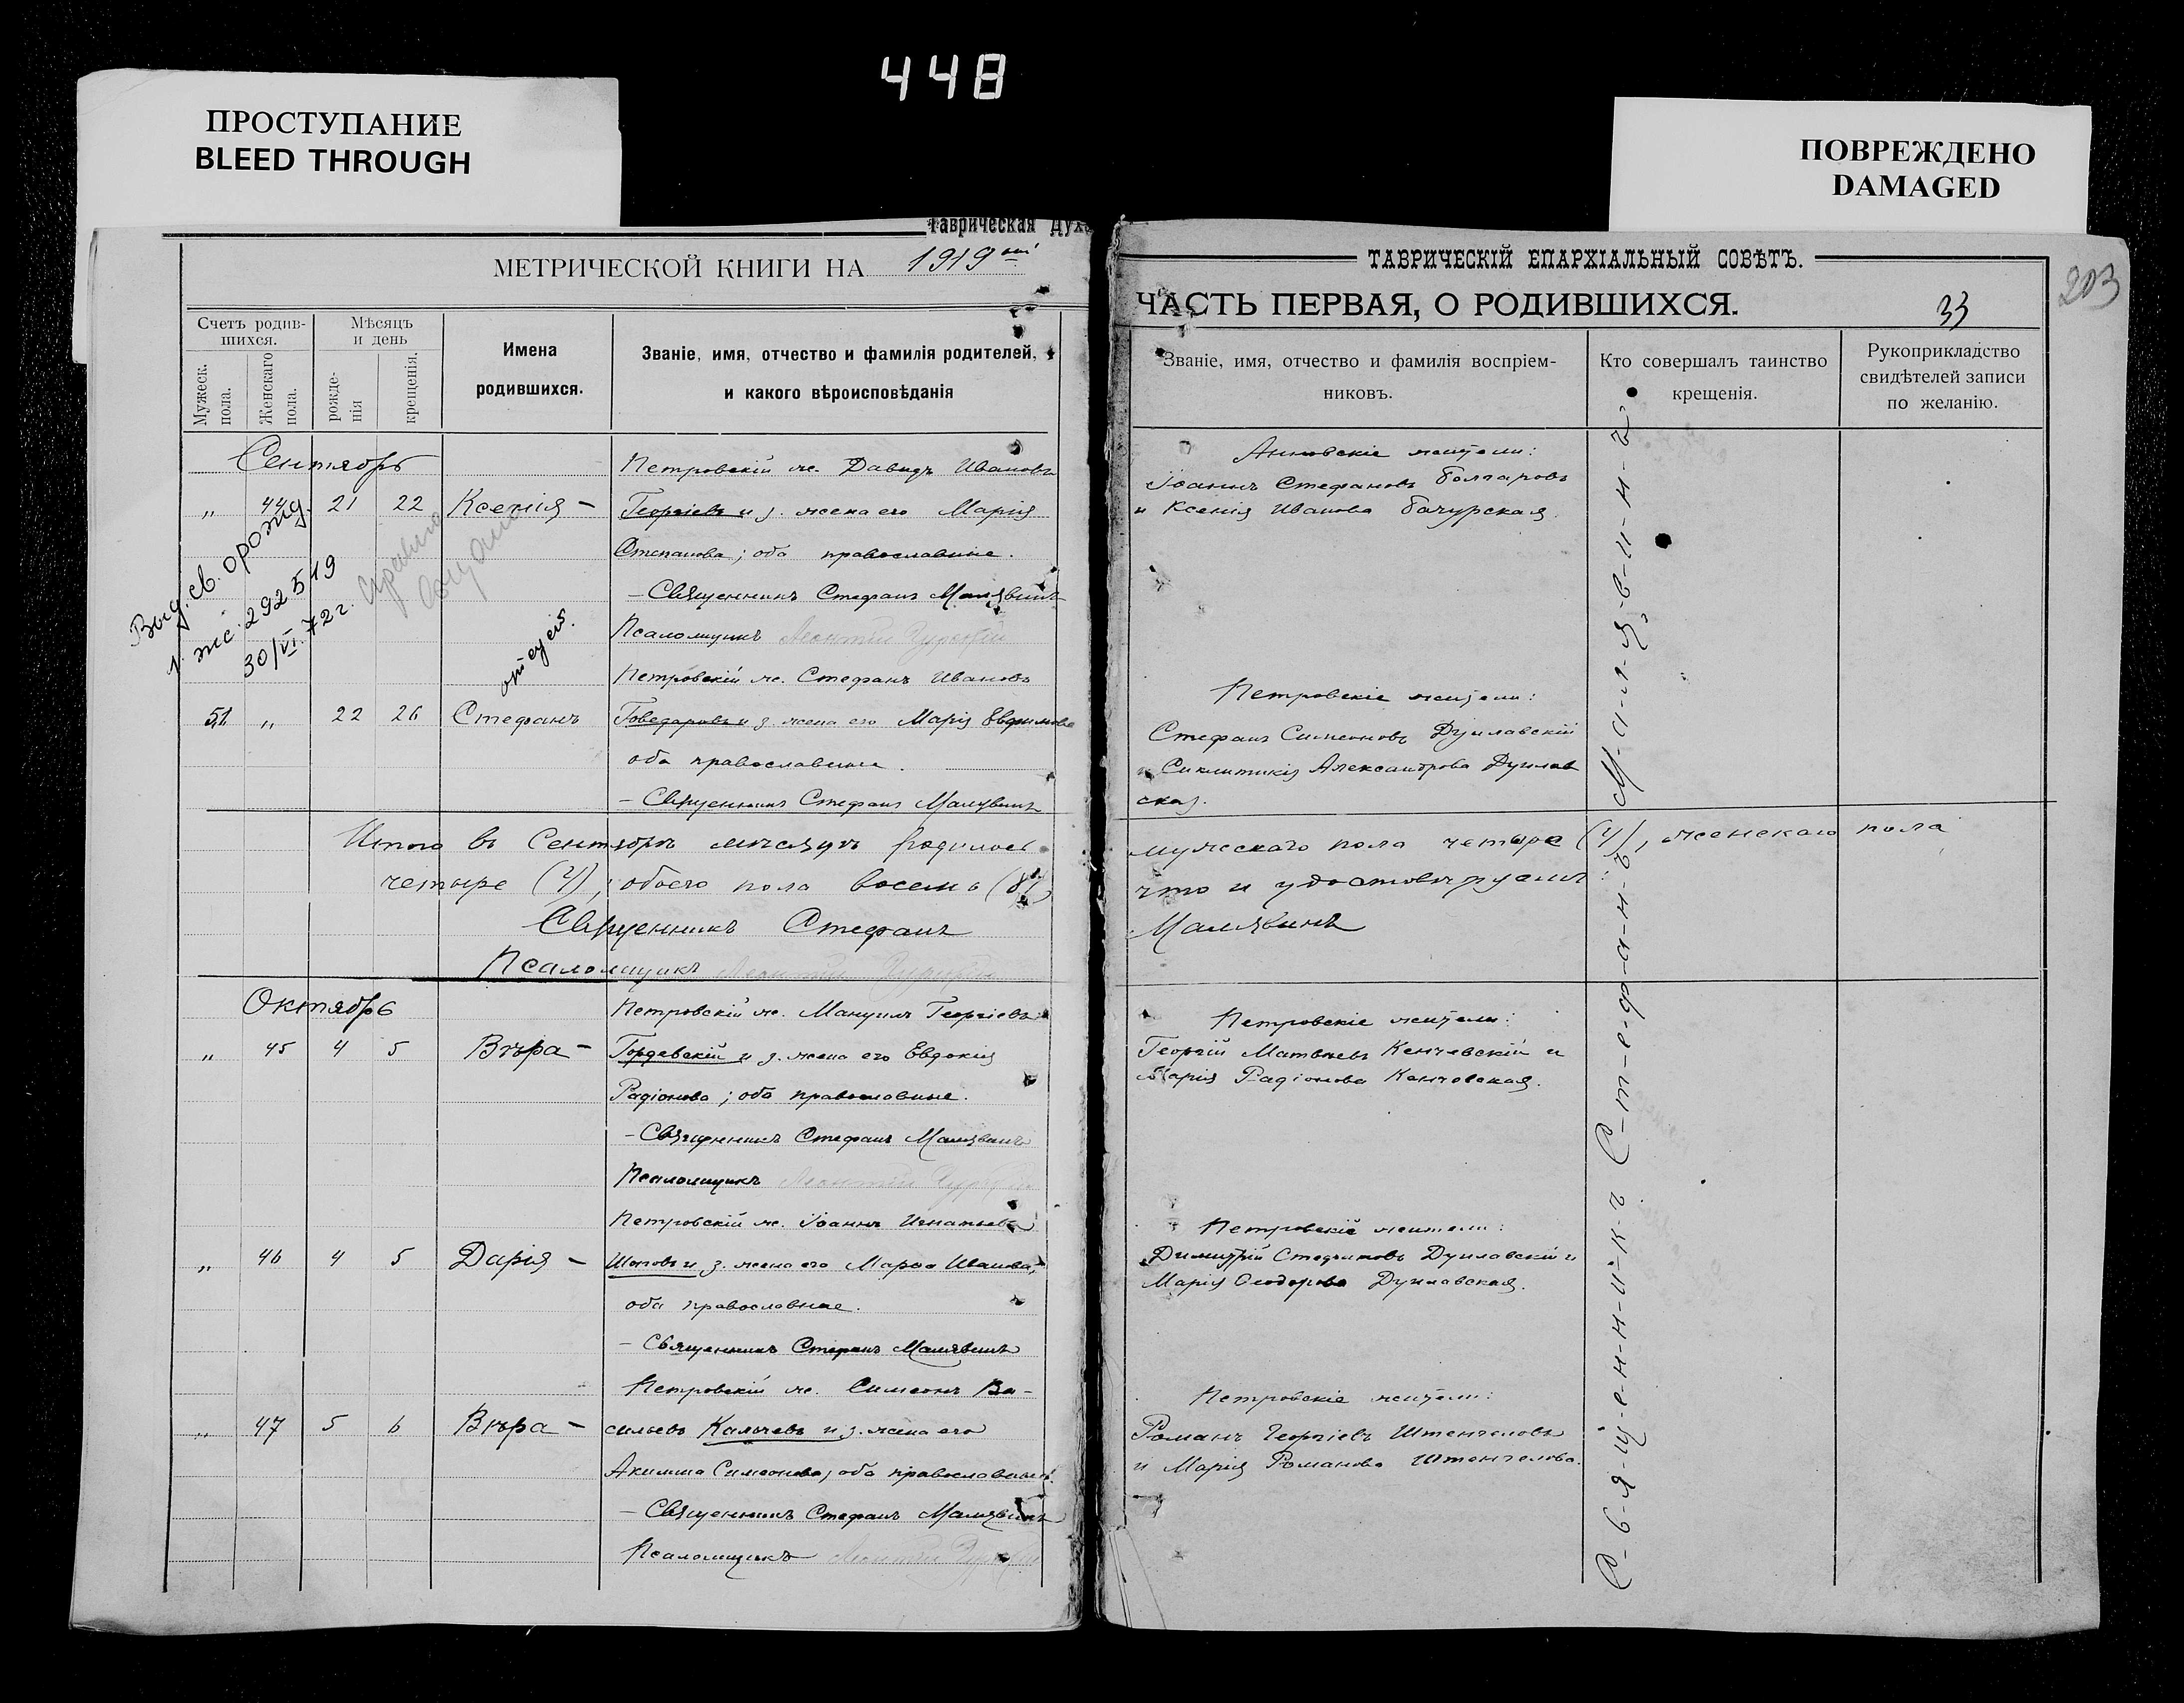 448
ПРОСТУПАНИЕ
BLEED THROUGH
ПОВРЕЖДЕНО
DAMAGED
Таврическая Дух
МЕТРИЧЕСКОЙ КНИГИ НА 1919
Счетъ родив-
шихся.
Мужеск.
пола.
Женскаго
пола.
Мѣсяцъ
и день
рожде-
нія
крещенія.
Имена
родившихся.
Званіе, имя, отчество и фамилія родителей,
и какого вѣроисповѣданія
Сентябрь
Петровскій ж. Давидъ Ивановъ
„ 44 21 22 Ксенія – Георгіевъ и з. жена его Марія
Степанова; оба православные.
– Священникъ Стефанъ Малявинъ
Псаломщикъ Леонтій
Выд. св. о рожд.
292519
30/VI. 72 г.
Петровскій ж. Стефанъ Ивановъ
51 „ 22 26 Стефанъ Говедаровъ и з. жена его Марія Евфимова
оба православные.
– Священникъ Стефанъ Малявинъ
Итого въ Сентябрѣ мѣсяцѣ родилось
четыре (4), обоего пола восемь (8)
Священникъ Стефанъ
Псаломщикъ Леонтій
Октябрь
Петровскій ж. Мануилъ Георгіевъ
„ 45 4 5 Вѣра – Гордевскій и з. жена его Евдокія
Радіонова; оба православные.
– Священникъ Стефанъ Малявинъ
Псаломщикъ Леонтій
Петровскій ж. Іоаннъ Игнатьевъ
„ 46 4 5 Дарія – Шоповъ и з. жена его Марѳа Иванова,
оба православные.
– Священникъ Стефанъ Малявинъ
Петровскій ж. Симеонъ Ва-
„ 47 5 6 Вѣра – сильевъ Калчевъ и з. жена его
Акилина Симеонова, оба православные.
– Священникъ Стефанъ Малявинъ
Псаломщикъ Леонтій
ТАВРИЧЕСКІЙ ЕПАРХІАЛЬНЫЙ СОВѢТЪ.
203
ЧАСТЬ ПЕРВАЯ, О РОДИВШИХСЯ.
33
Званіе, имя, отчество и фамилія воспріем-
никовъ.
Кто совершалъ таинство
крещенія.
Рукоприкладство
свидѣтелей записи
по желанію.
Анновскіе жители:
Іоаннъ Стефановъ Болгаровъ
и Ксенія Иванова Бачурская.
Петровскіе жители:
Стефанъ Симеоновъ Дунлавскій
и Синклитикія Александрова Дунлав
ская.
мужескаго пола четыре (4), женскаго пола
что и удостовѣряемъ:
Малявинъ
Петровскіе жители:
Георгій Матвѣевъ Кенчевскій и
Марія Радіонова Канчевская.
Петровскіе жители:
Димитрій Стефановъ Дунлавскій и
Марія Ѳеодорова Дунлавская.
Петровскіе жители:
Романъ Георгіевъ Штенгеловъ
и Марія Романова Штенгелова.
С-в-я-щ-е-н-н-и-к-ъ С-т-е-ф-а-н-ъ М-а-л-я-в-и-н-ъ